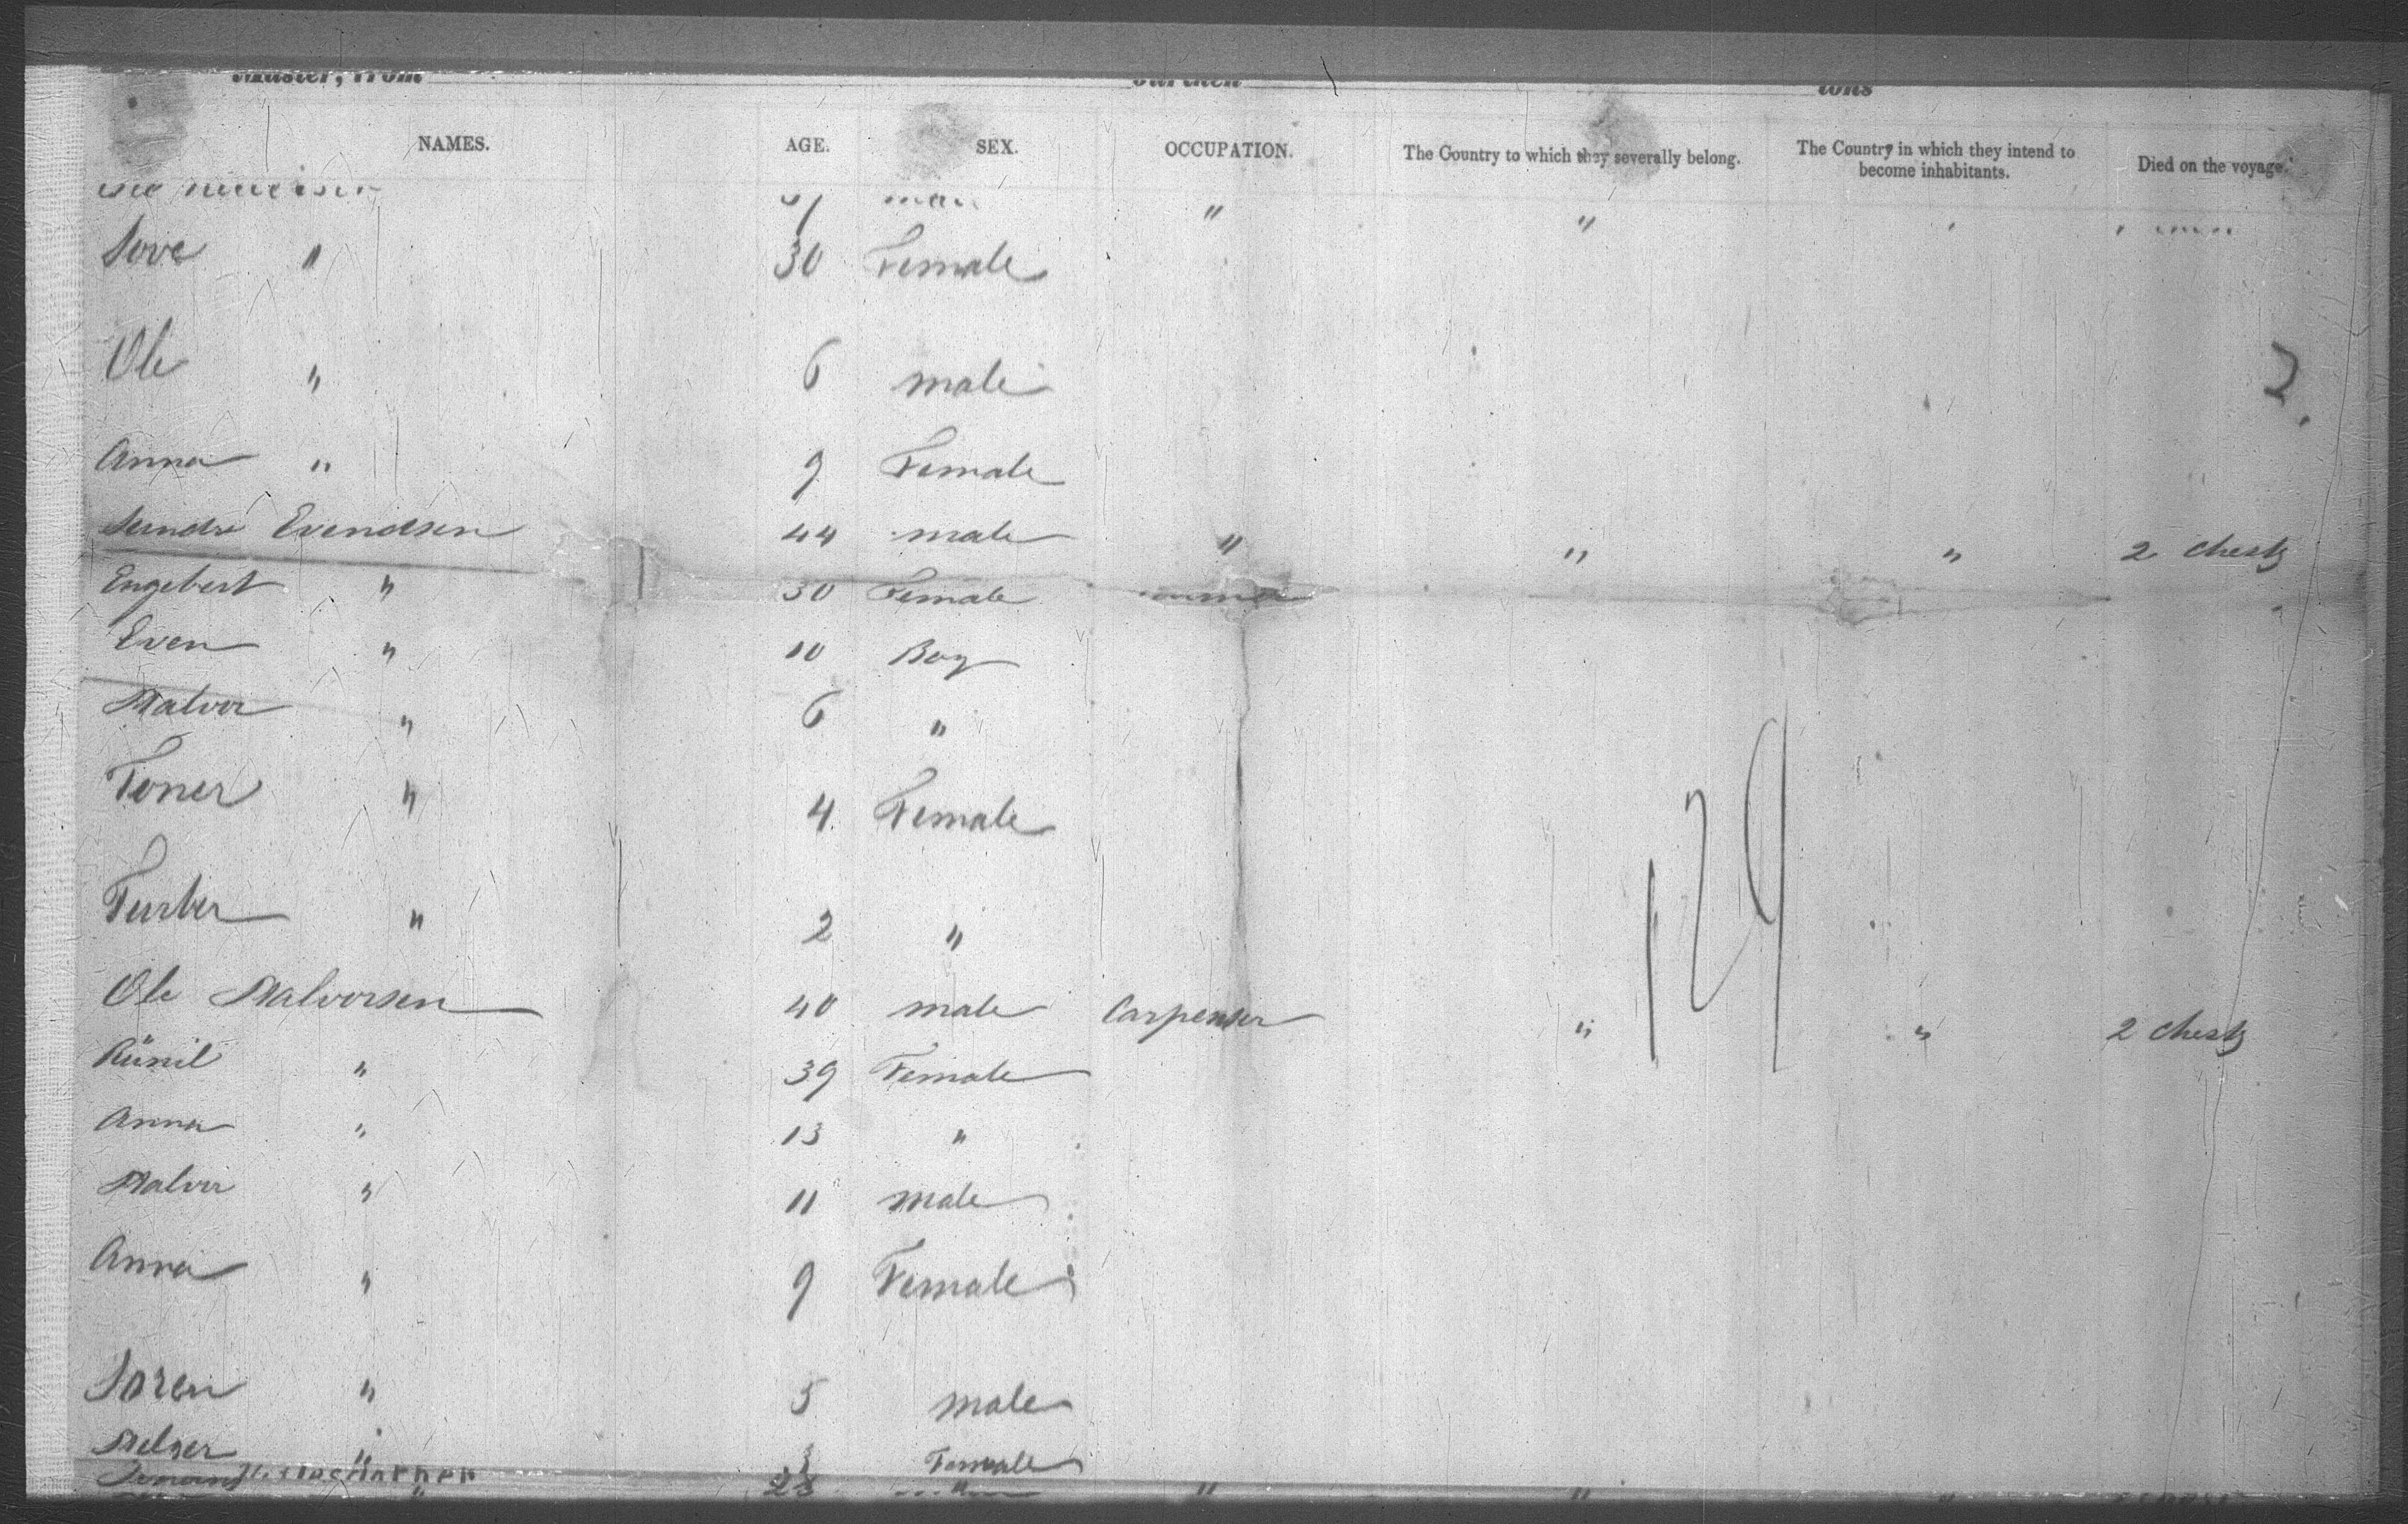 Master, from burthen tons
NAMES. AGE. SEX. OCCUPATION. The Country to which they severally belong. The Country in which they intend to become inhabitants. Died on the voyage.
" "
Sove " 30 Female
Ole " 6 male
2.
Anna " 9 Female
Evendsen 44 male " " " 2 chests
Engebert " 30 Female
Even " 10 Boy
Halvor " 6 "
Toner " 4 Female
Turber " 2 "
129
Ole Halvorsen 40 male Carpenter " " 2 chests
Rünil " 39 Female
Anna " 13 "
Halvor " 11 male
Anna " 9 Female
Soren " 5 male
Helger " 3 Female
28 " " "